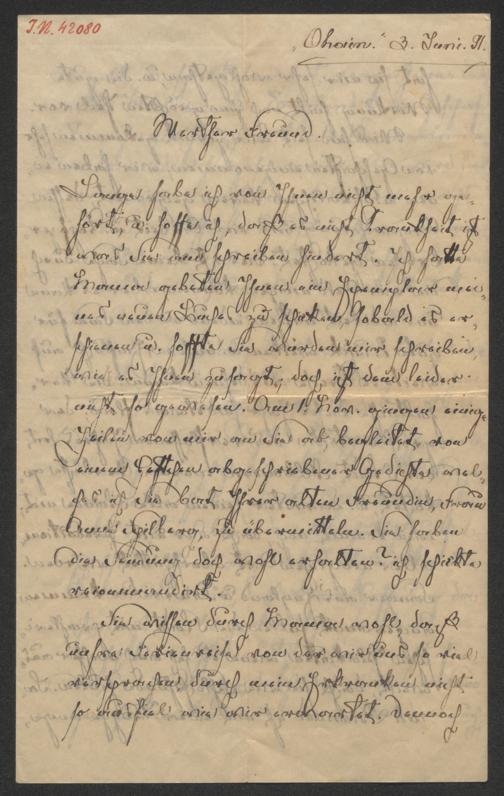 I.N. 42080
"Ohain." 3. Juni. 91.
Werther Freund.
Lange habe ich von Ihnen nicht mehr ge-
hört, u. hoffe ich, daß es nicht Krankheit ist
was Sie am schreiben hindert. Ich hatte
Manna gebeten Ihnen ein Exemplar mei-
nes neuen Buches zu schicken sobald es er-
schienen u. hoffte Sie würden mir schreiben
wie es Ihnen zusagt, doch ist dem leider
nicht so gewesen. Am 1. gingen einige
Zeilen von mir an Sie ab begleitet von
einem Heftchen abgeschriebener Gedichte wel-
ches ich Sie bat Ihrer alten Freundin, Frau
Anna Spilberg, zu übermitteln. Sie haben
die Sendung doch wohl erhalten? ich schickte
recommandirt.
Sie wissen durch Manna wohl daß
unsre Ferienreise von der wir uns so viel
versprachen, durch mein Erkranken nicht
so ausfiel wie wir erwartet. Dennoch